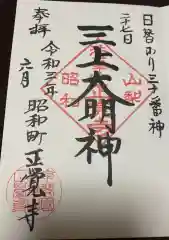 日替わり三十番神
二十七日
三上大明神
山梨
昭和
奉拝
令和三年
六月
昭和町
正覚寺